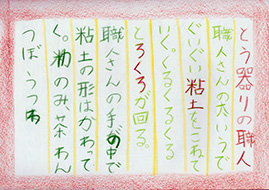 とう器りの職人
職人さんの太いうで
ぐいぐい粘土をこねて
いく。ぐるぐるぐる
とろくろが回る。
職人さんの手の中で
粘土の形はかわって
く。湯のみ、茶わん
つぼ、うつわ